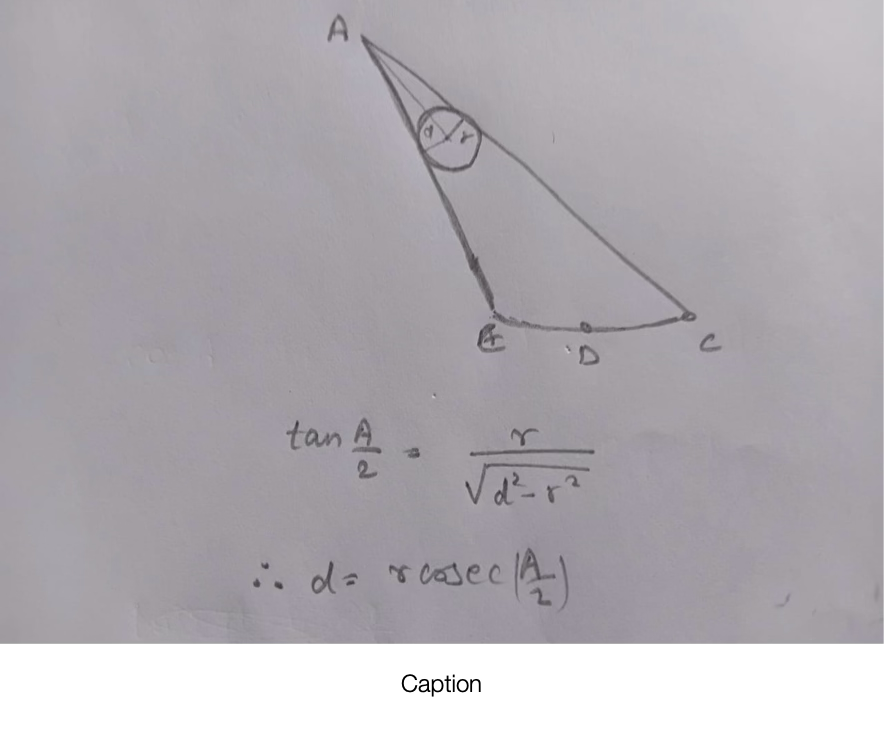 A
d r
E D C
tan A/2 = r/√(d²-r²)
∴ d = r cosec(A/2)
Caption